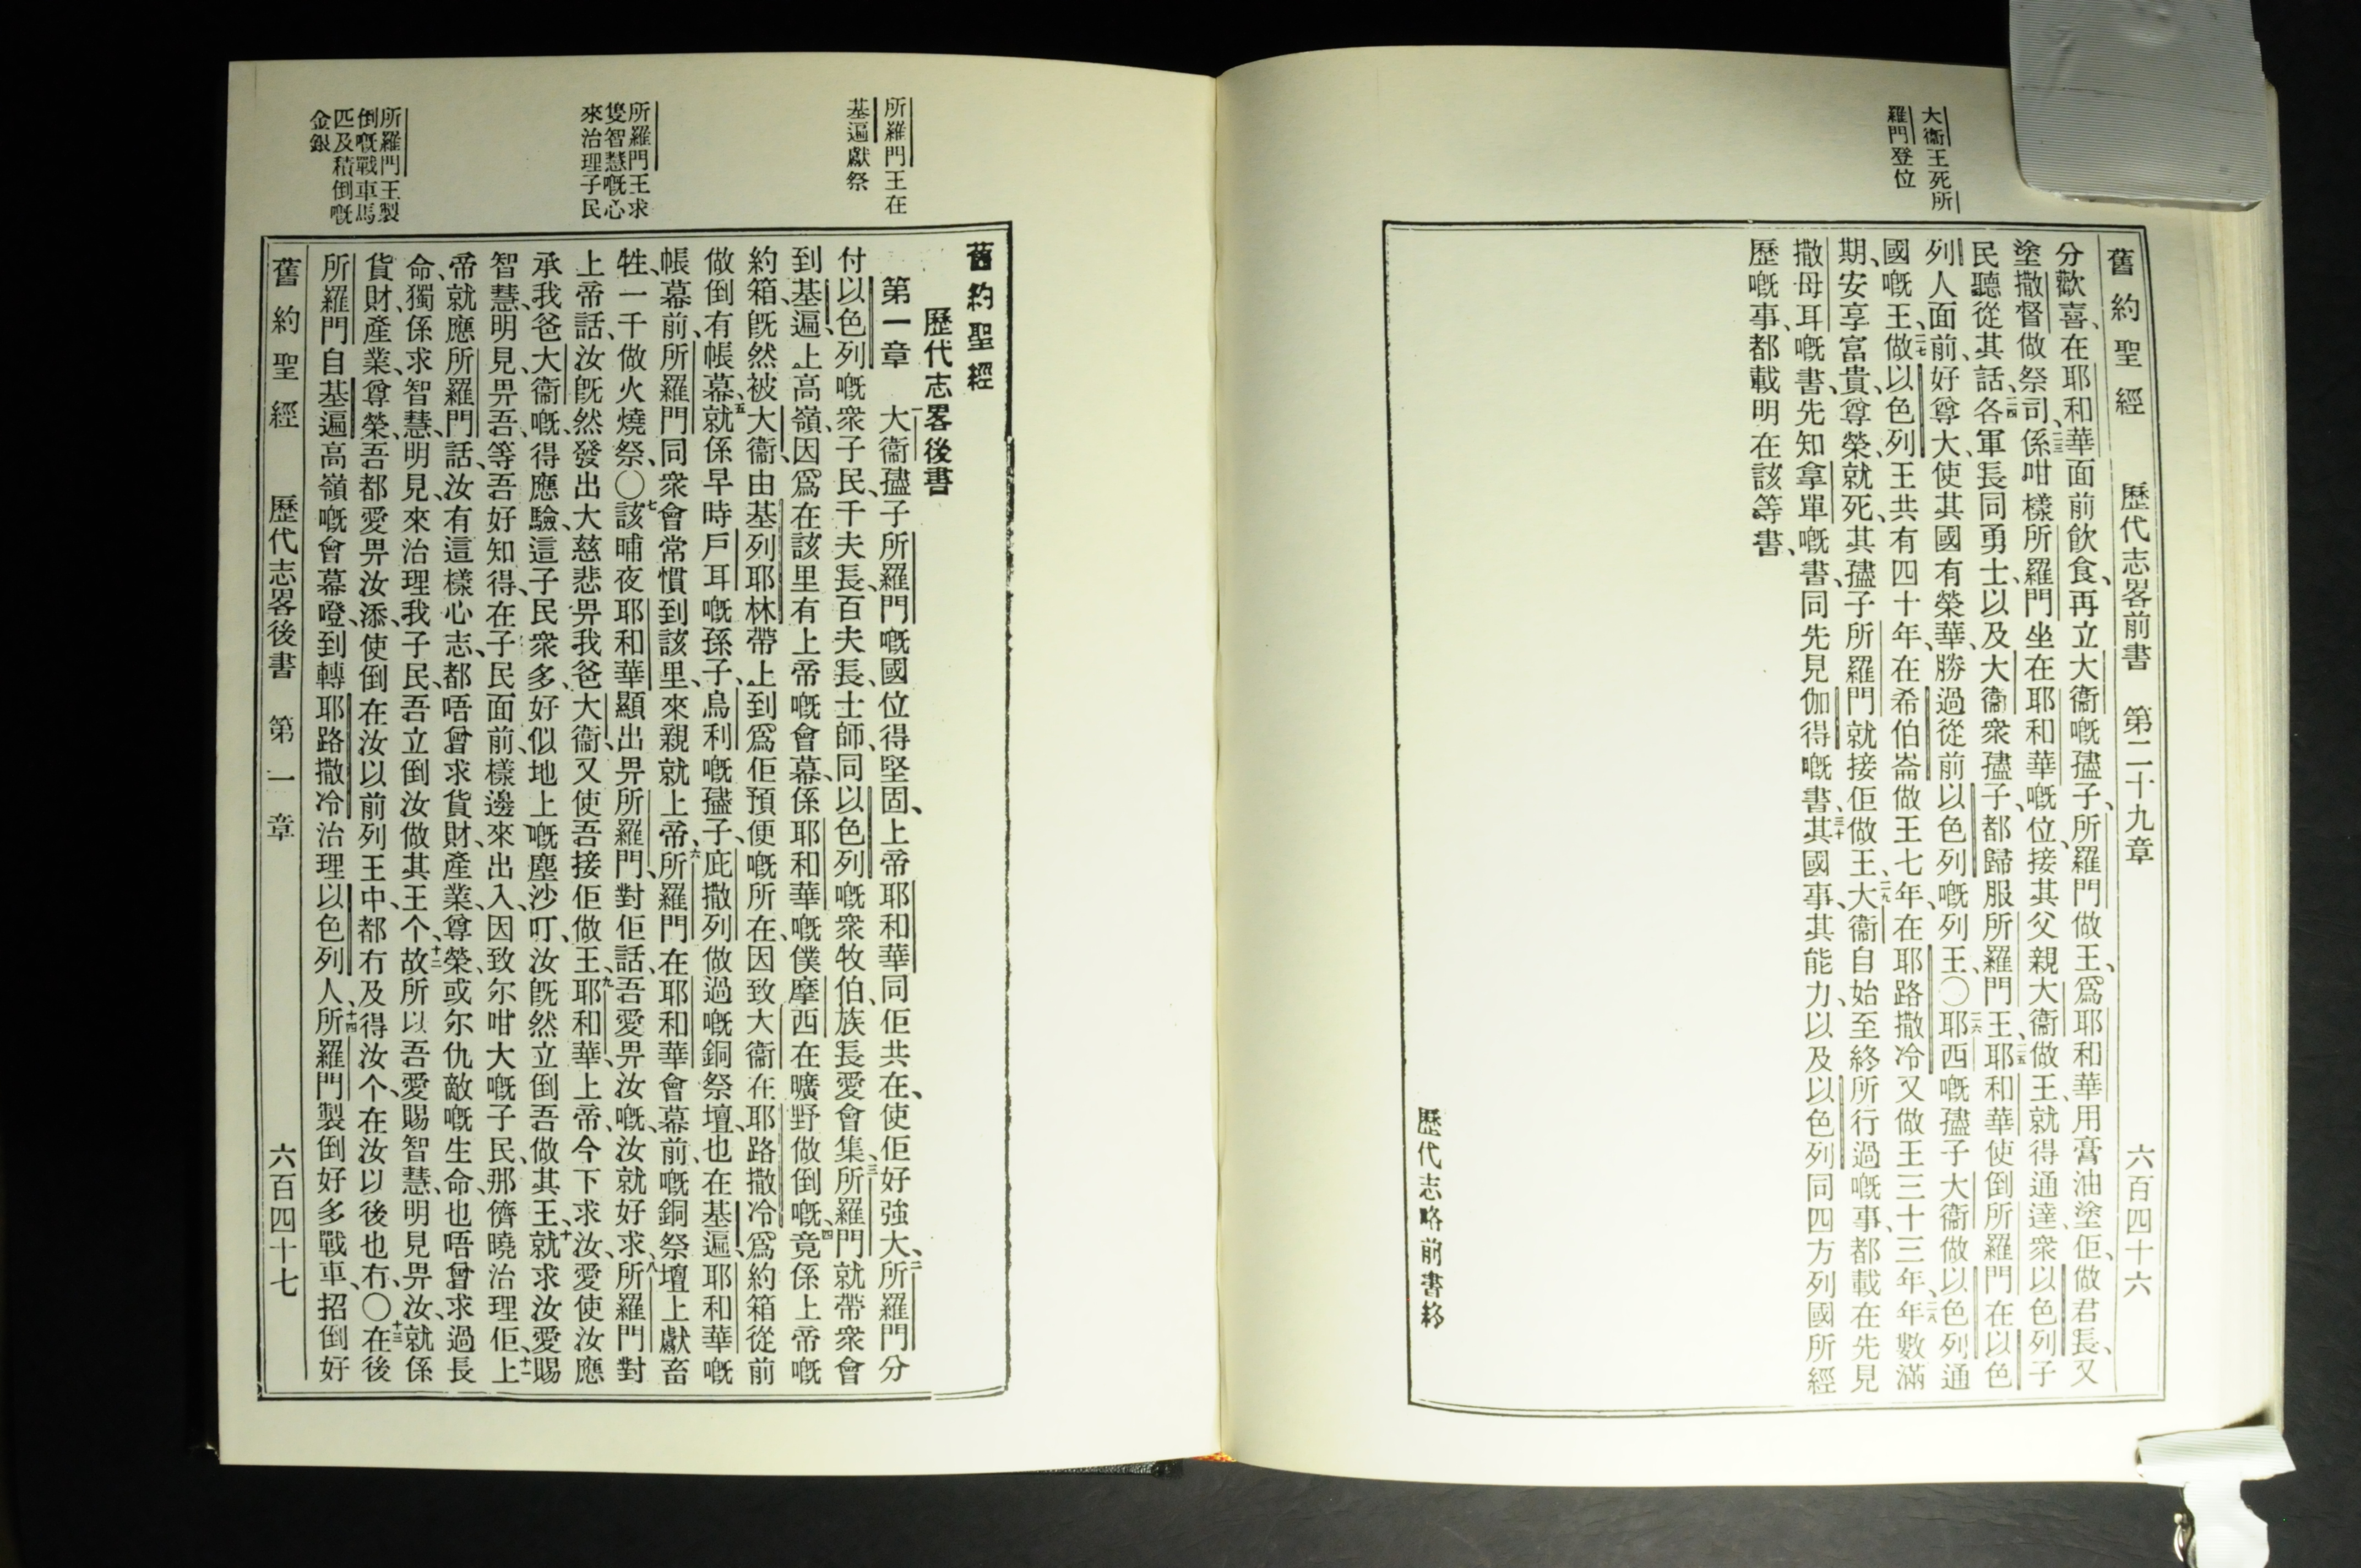 大衞王死所
羅門登位
舊約聖經 歷代志畧前書 第二十九章 六百四十六
分歡喜、在耶和華面前飮食、再立大衞嘅孻子、所羅門做王、爲耶和華用膏油塗佢、做君長、又
塗撒督做祭司、二三係咁樣所羅門坐在耶和華嘅位、接其父親大衞做王、就得通達、衆以色列子
民聽從其話、二四各軍長同勇士、以及大衞衆孻子、都歸服所羅門王、二五耶和華使倒所羅門在以色
列人面前、好尊大、使其國有榮華、勝過從前以色列嘅列王、〇二六耶西嘅孻子大衞做以色列通
國嘅王、二七做以色列王共有四十年、在希伯崙做王七年、在耶路撒冷又做王三十三年、二八年數滿
期、安享富貴、尊榮、就死、其孻子所羅門就接佢做王、二九大衞自始至終所行過嘅事、都載在先見
撒母耳嘅書、先知拿單嘅書、同先見伽得嘅書、三十其國事、其能力、以及以色列同四方列國所經
歷嘅事、都載明在該等書、
歷代志略前書終
所羅門王在
基遍獻祭
所羅門王求
隻智慧嘅心
來治理子民
所羅門王製
倒嘅戰車馬
匹及積倒嘅
金銀
舊約聖經
歷代志畧後書
第一章 一大衞孻子所羅門嘅國位得堅固、上帝耶和華同佢共在、使佢好強大、二所羅門分
付以色列嘅衆子民、千夫長、百夫長、士師、同以色列嘅衆牧伯、族長愛會集、三所羅門就帶衆會
到基遍、上高嶺、因爲在該里有上帝嘅會幕、係耶和華嘅僕摩西在曠野做倒嘅、四竟係上帝嘅
約箱、旣然被大衞、由基列耶林帶上、到爲佢預便嘅所在、因致大衞在耶路撒冷、爲約箱從前
做倒有帳幕、五就係早時戶耳嘅孫子、烏利嘅孻子、庇撒列做過嘅銅祭壇、也在基遍、耶和華嘅
帳幕前、所羅門同衆會常慣到該里、來親就上帝、六所羅門在耶和華會幕前、嘅銅祭壇上獻畜
牲、一千做火燒祭、〇七該晡夜耶和華顯出畀所羅門、對佢話、吾愛畀汝嘅、汝就好求、八所羅門對
上帝話、汝旣然發出大慈悲畀我爸大衞、又使吾接佢做王、九耶和華上帝、今下求汝、愛使汝應
承我爸大衞嘅、得應驗、這子民衆多、好似地上嘅塵沙叮、汝旣然立倒吾做其王、十就求汝愛賜
智慧、明見畀吾、等吾好知得、在子民面前、樣邊來出入、因致尔咁大嘅子民、那儕曉治理佢、十一上
帝就應所羅門話、汝有這樣心志、都唔曾求貨財、產業、尊榮、或尔仇敵嘅生命、也唔曾求過長
命、獨係求智慧、明見、來治理我子民、吾立倒汝做其王个、十二故所以吾愛賜智慧、明見畀汝、就係
貨財、產業、尊榮、吾都愛畀汝添、使倒在汝以前列王中、都冇及得汝个、在汝以後也冇、〇十三在後
所羅門自基遍高嶺嘅會幕噔、到轉耶路撒冷治理以色列人、十四所羅門製倒好多戰車、招倒好
舊約聖經 歷代志畧後書 第一章 六百四十七